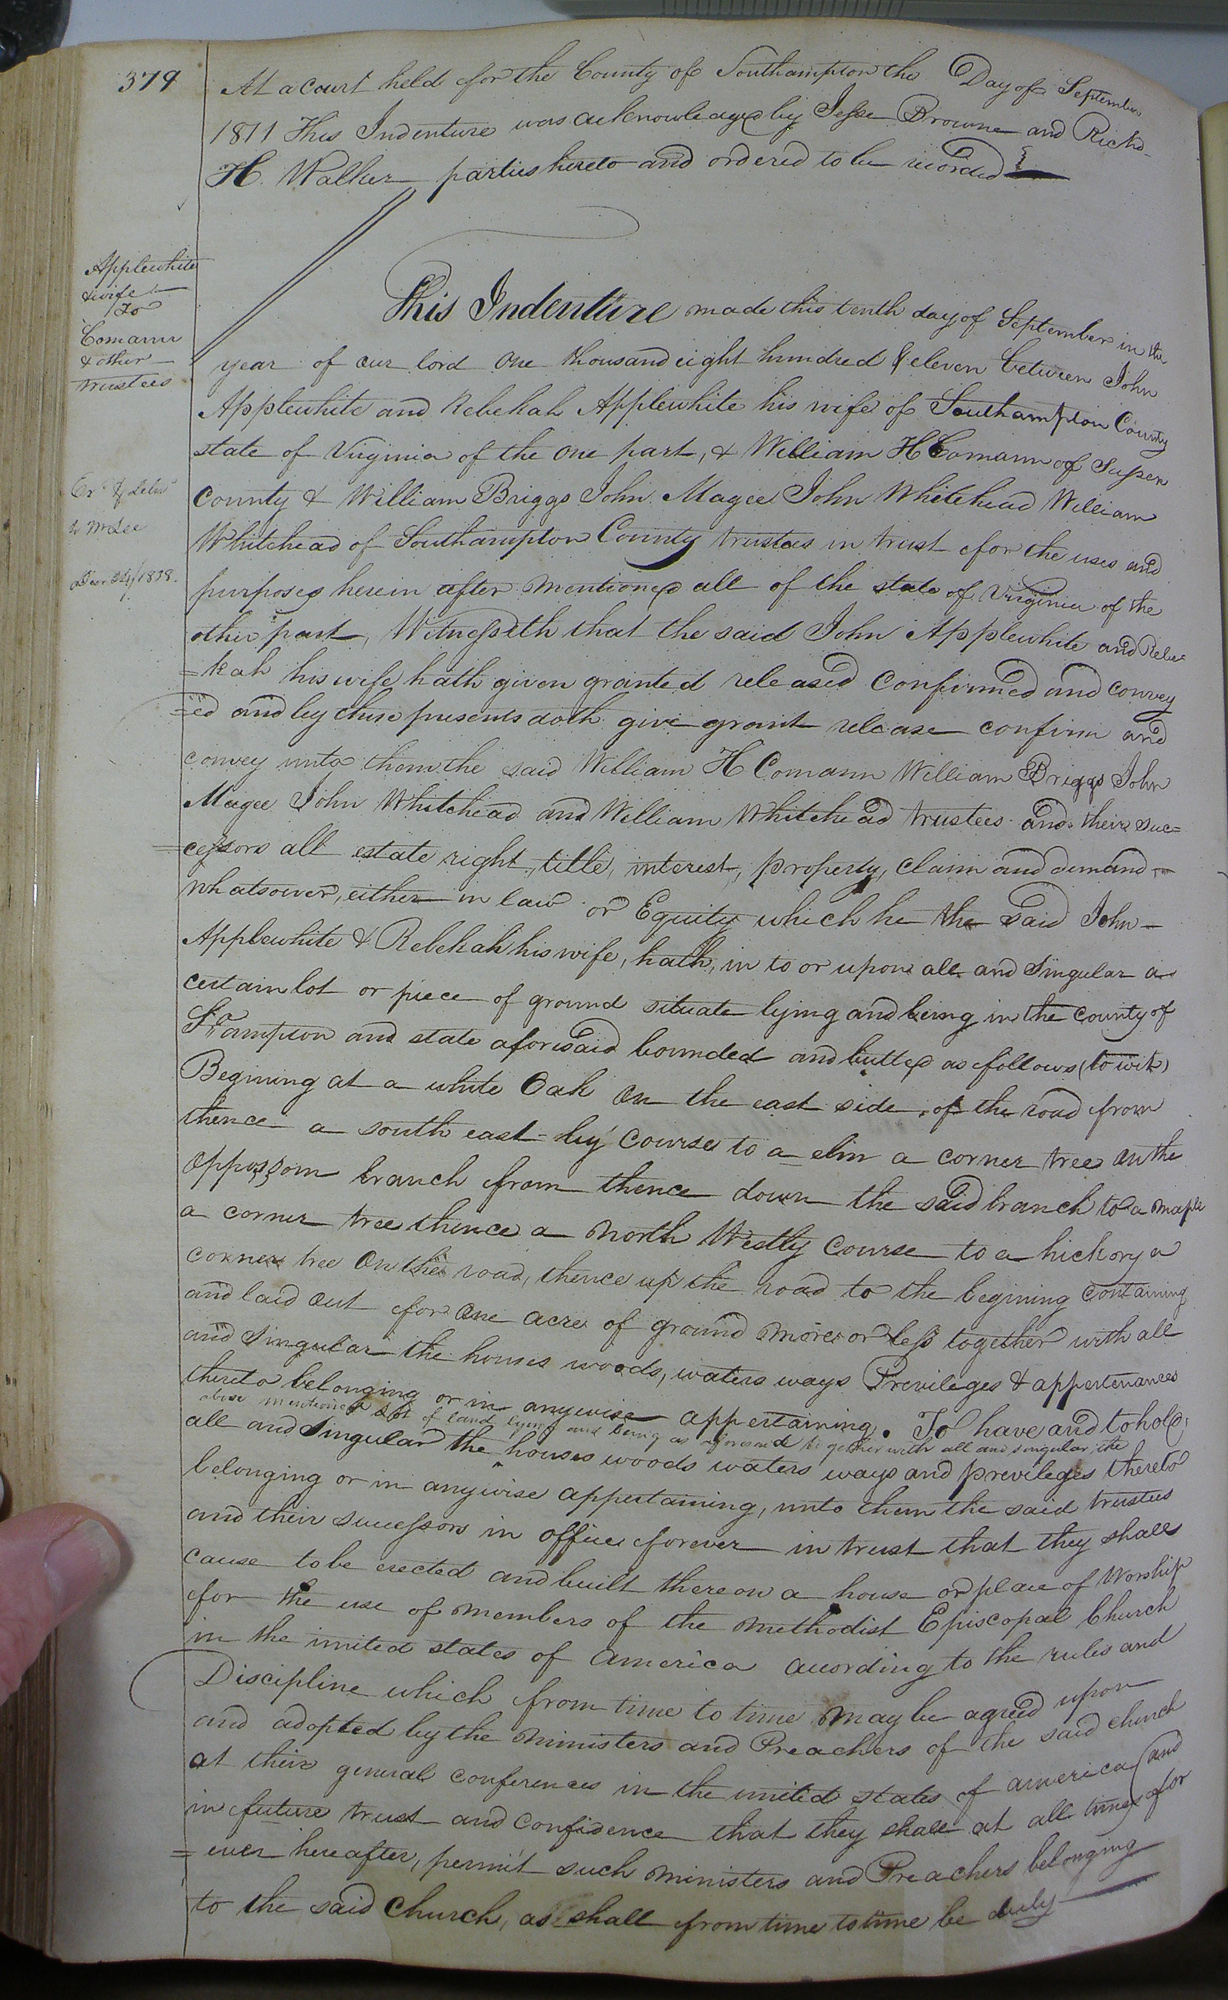 379
At a court held for the County of Southampton the Day of September
1811 This Indenture was acknowledged by Jesse Browne and Richd
H. Walker parties hereto and ordered to be recorded
Applewhite
& wife
To
Comann
& other
trustees
This Indenture made this tenth day of September in the
year of our lord one thousand eight hundred & eleven between John
Applewhite and Rebekah Applewhite his wife of Southampton County
state of Virginia of the one part, & William H Comann of Sussex
County & William Briggs John Magee John Whitehead William
Whitehead of Southampton County trustees in trust for the uses and
purposes herein after mentioned all of the state of Virginia of the
other part, Witnesseth that the said John Applewhite and Rebe
=kah his wife hath given granted released confirmed and convey
=ed and by these presents doth give grant release confirm and
convey unto them the said William H Comann William Briggs John
Magee John Whitehead and William Whitehead trustees and their suc=
=cessors all estate right, title, interest, property, claim and demand
whatsoever, either in law or Equity which he the said John
Applewhite & Rebekah his wife, hath, in to or upon all and singular a
certain lot or piece of ground situate lying and being in the county of
S'Hampton and state aforesaid bounded and butted as follows (to wit)
Begining at a white Oak on the east side of the road from
thence a south east-ly course to a elm a corner tree on the
oppossom branch from thence down the said branch to a maple
a corner tree thence a North Westly course to a hickory a
corner tree on the road, thence up the road to the begining containing
and laid out for one acre of ground more or less together with all
and singular the houses woods, waters ways Previleges & appertenances
thereto belonging or in anywise appertaining. To have and to hold
above mentioned lot of land lying and being as aforesaid together with all and singular the
all and singular the houses woods waters ways and previleges thereto
belonging or in anywise appertaining, unto them the said trustees
and their successors in office forever in trust that they shall
cause to be erected and built thereon a house or place of Worship
for the use of members of the Methodist Episcopal Church
in the united states of America according to the rules and
Discipline which from time to time may be agreed upon
and adopted by the Ministers and Preachers of the said church
at their general conferences in the united states of america (and
in future trust and confidence that they shall at all times for
=ever hereafter, permit such ministers and Preachers belonging
to the said Church, as shall from time to time be duly